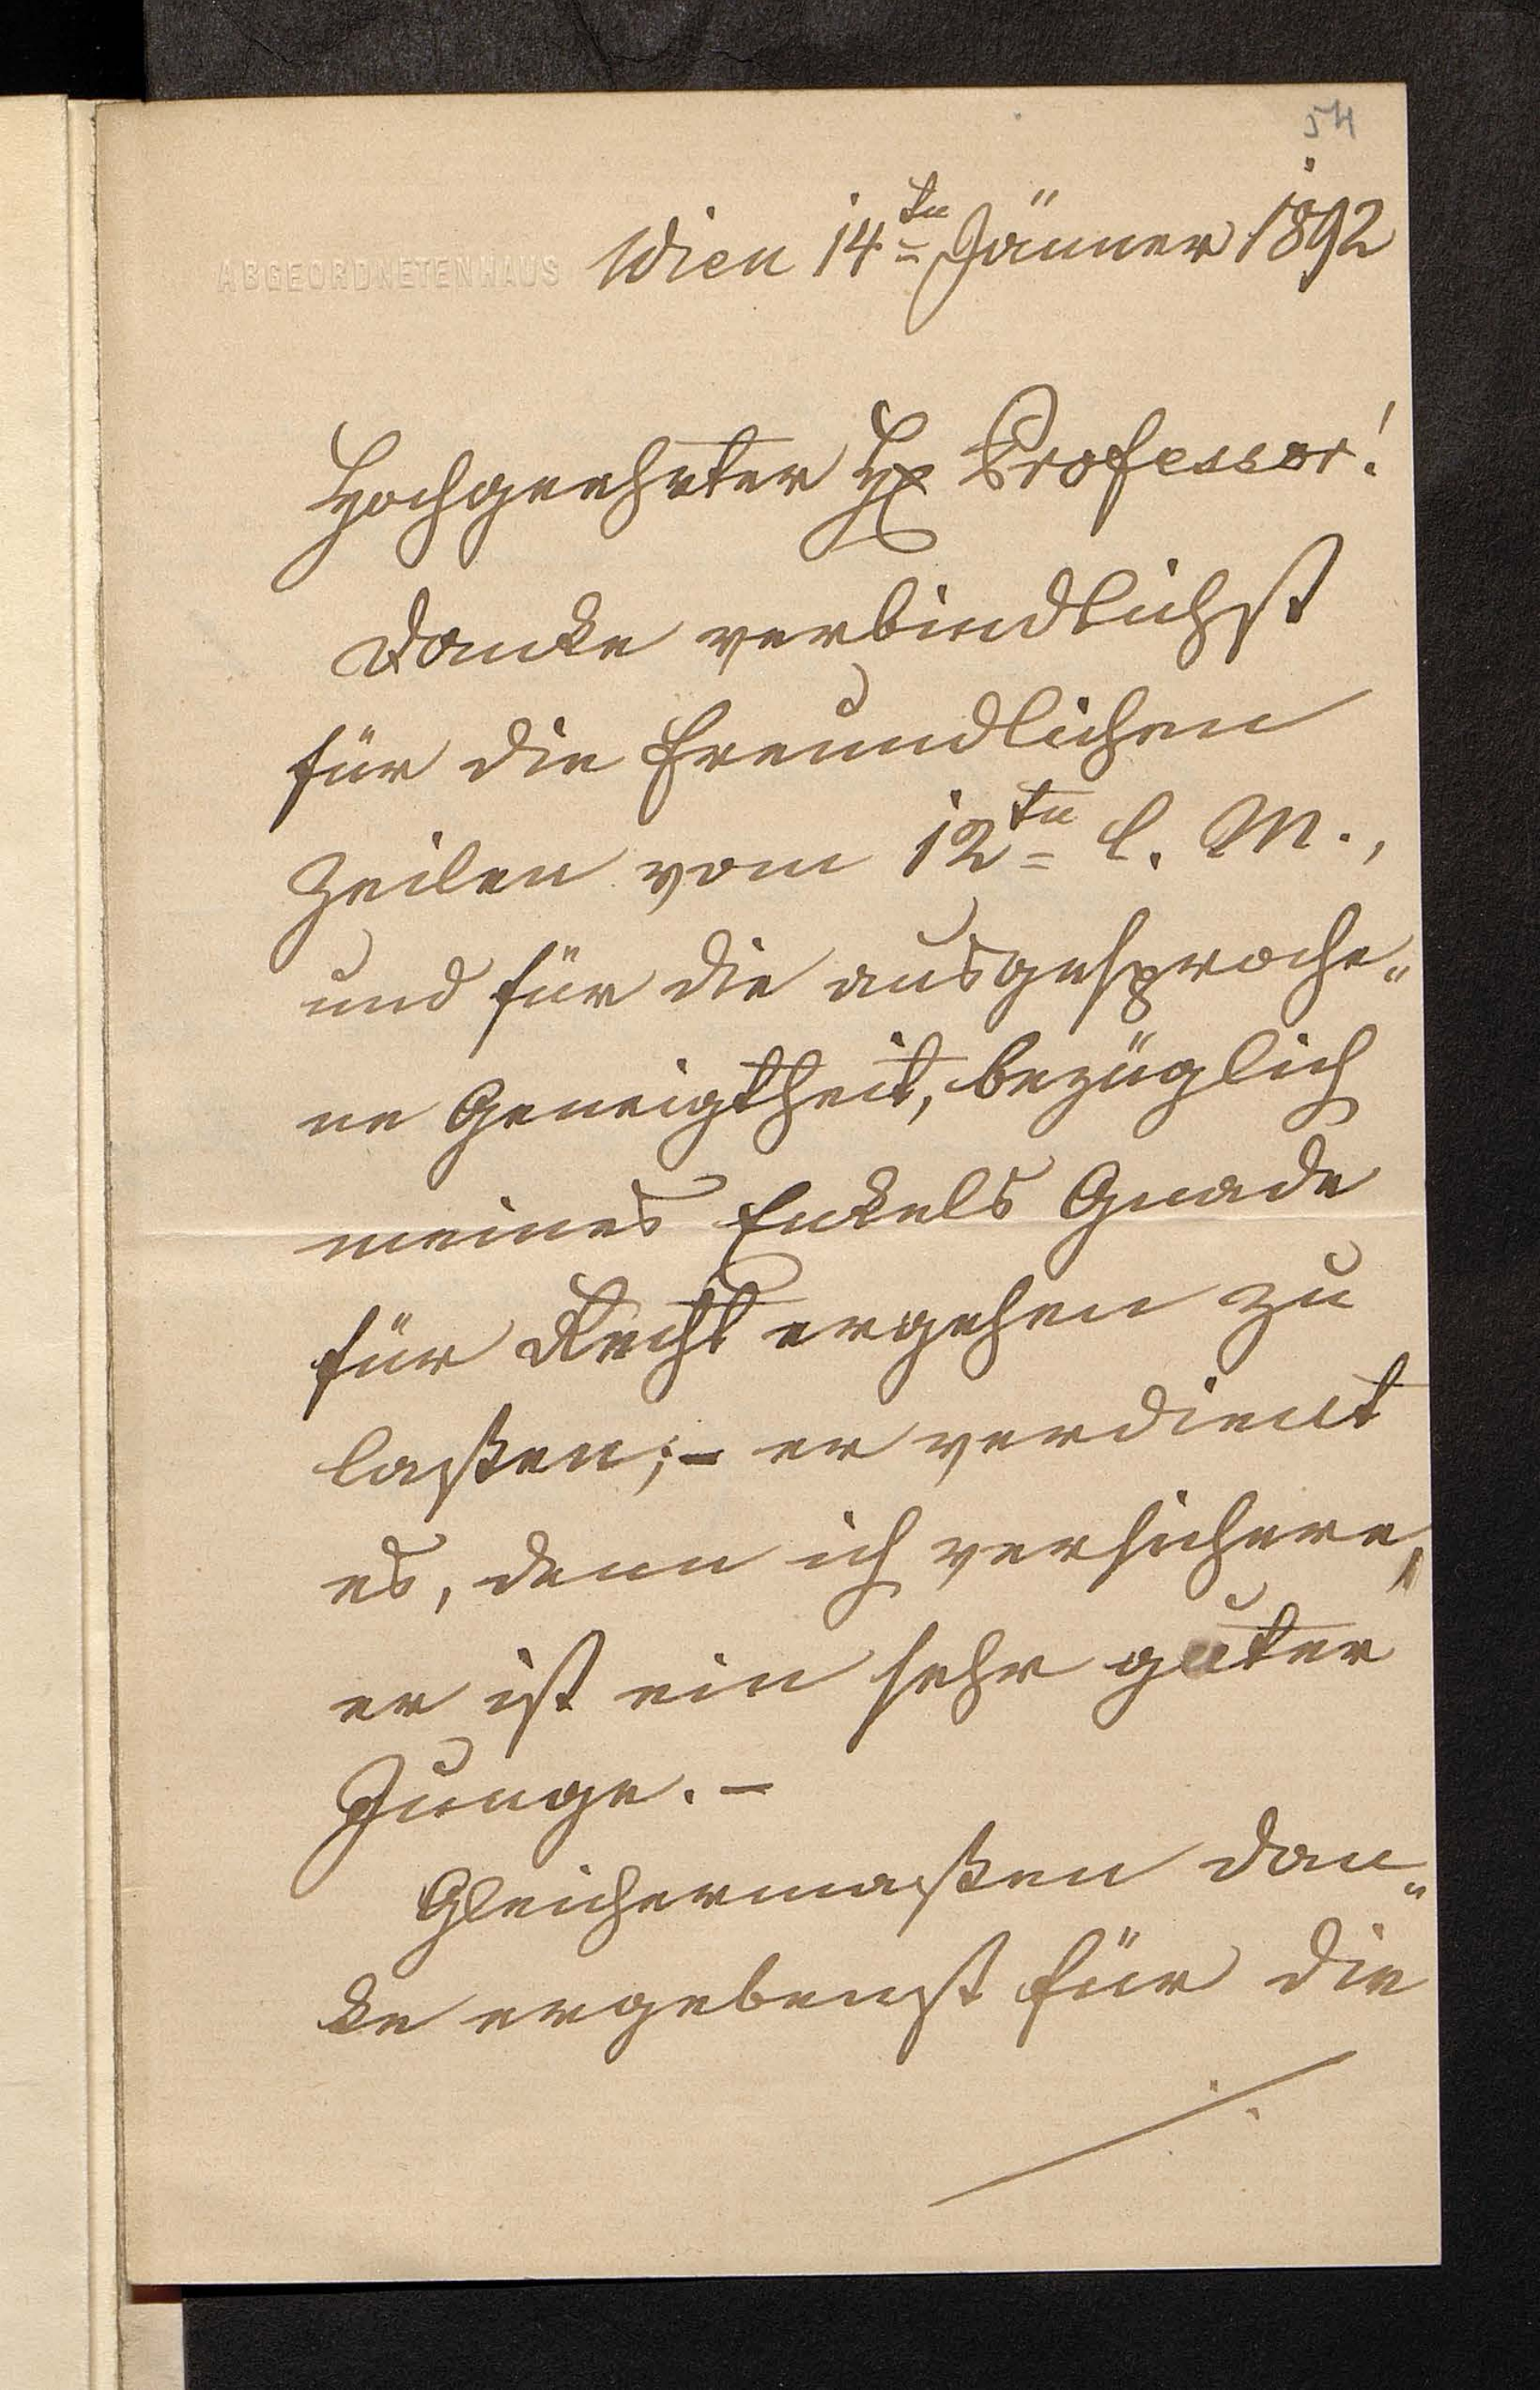 54
ABGEORDNETENHAUS Wien 14ten Jänner 1892
Hochgeehrter Hr Professor!
Danke verbindlichst
für die freundlichen
Zeilen vom 12ten l. M.,
und für die ausgesproche„
ne Geneigtheit, bezüglich
meines Enkels Gnade
für Recht ergehen zu
laßen; – er verdient
es, denn ich versichere,
er ist ein sehr guter
Junge. –
Gleichermaßen dan„
ke ergebenst für die
./.